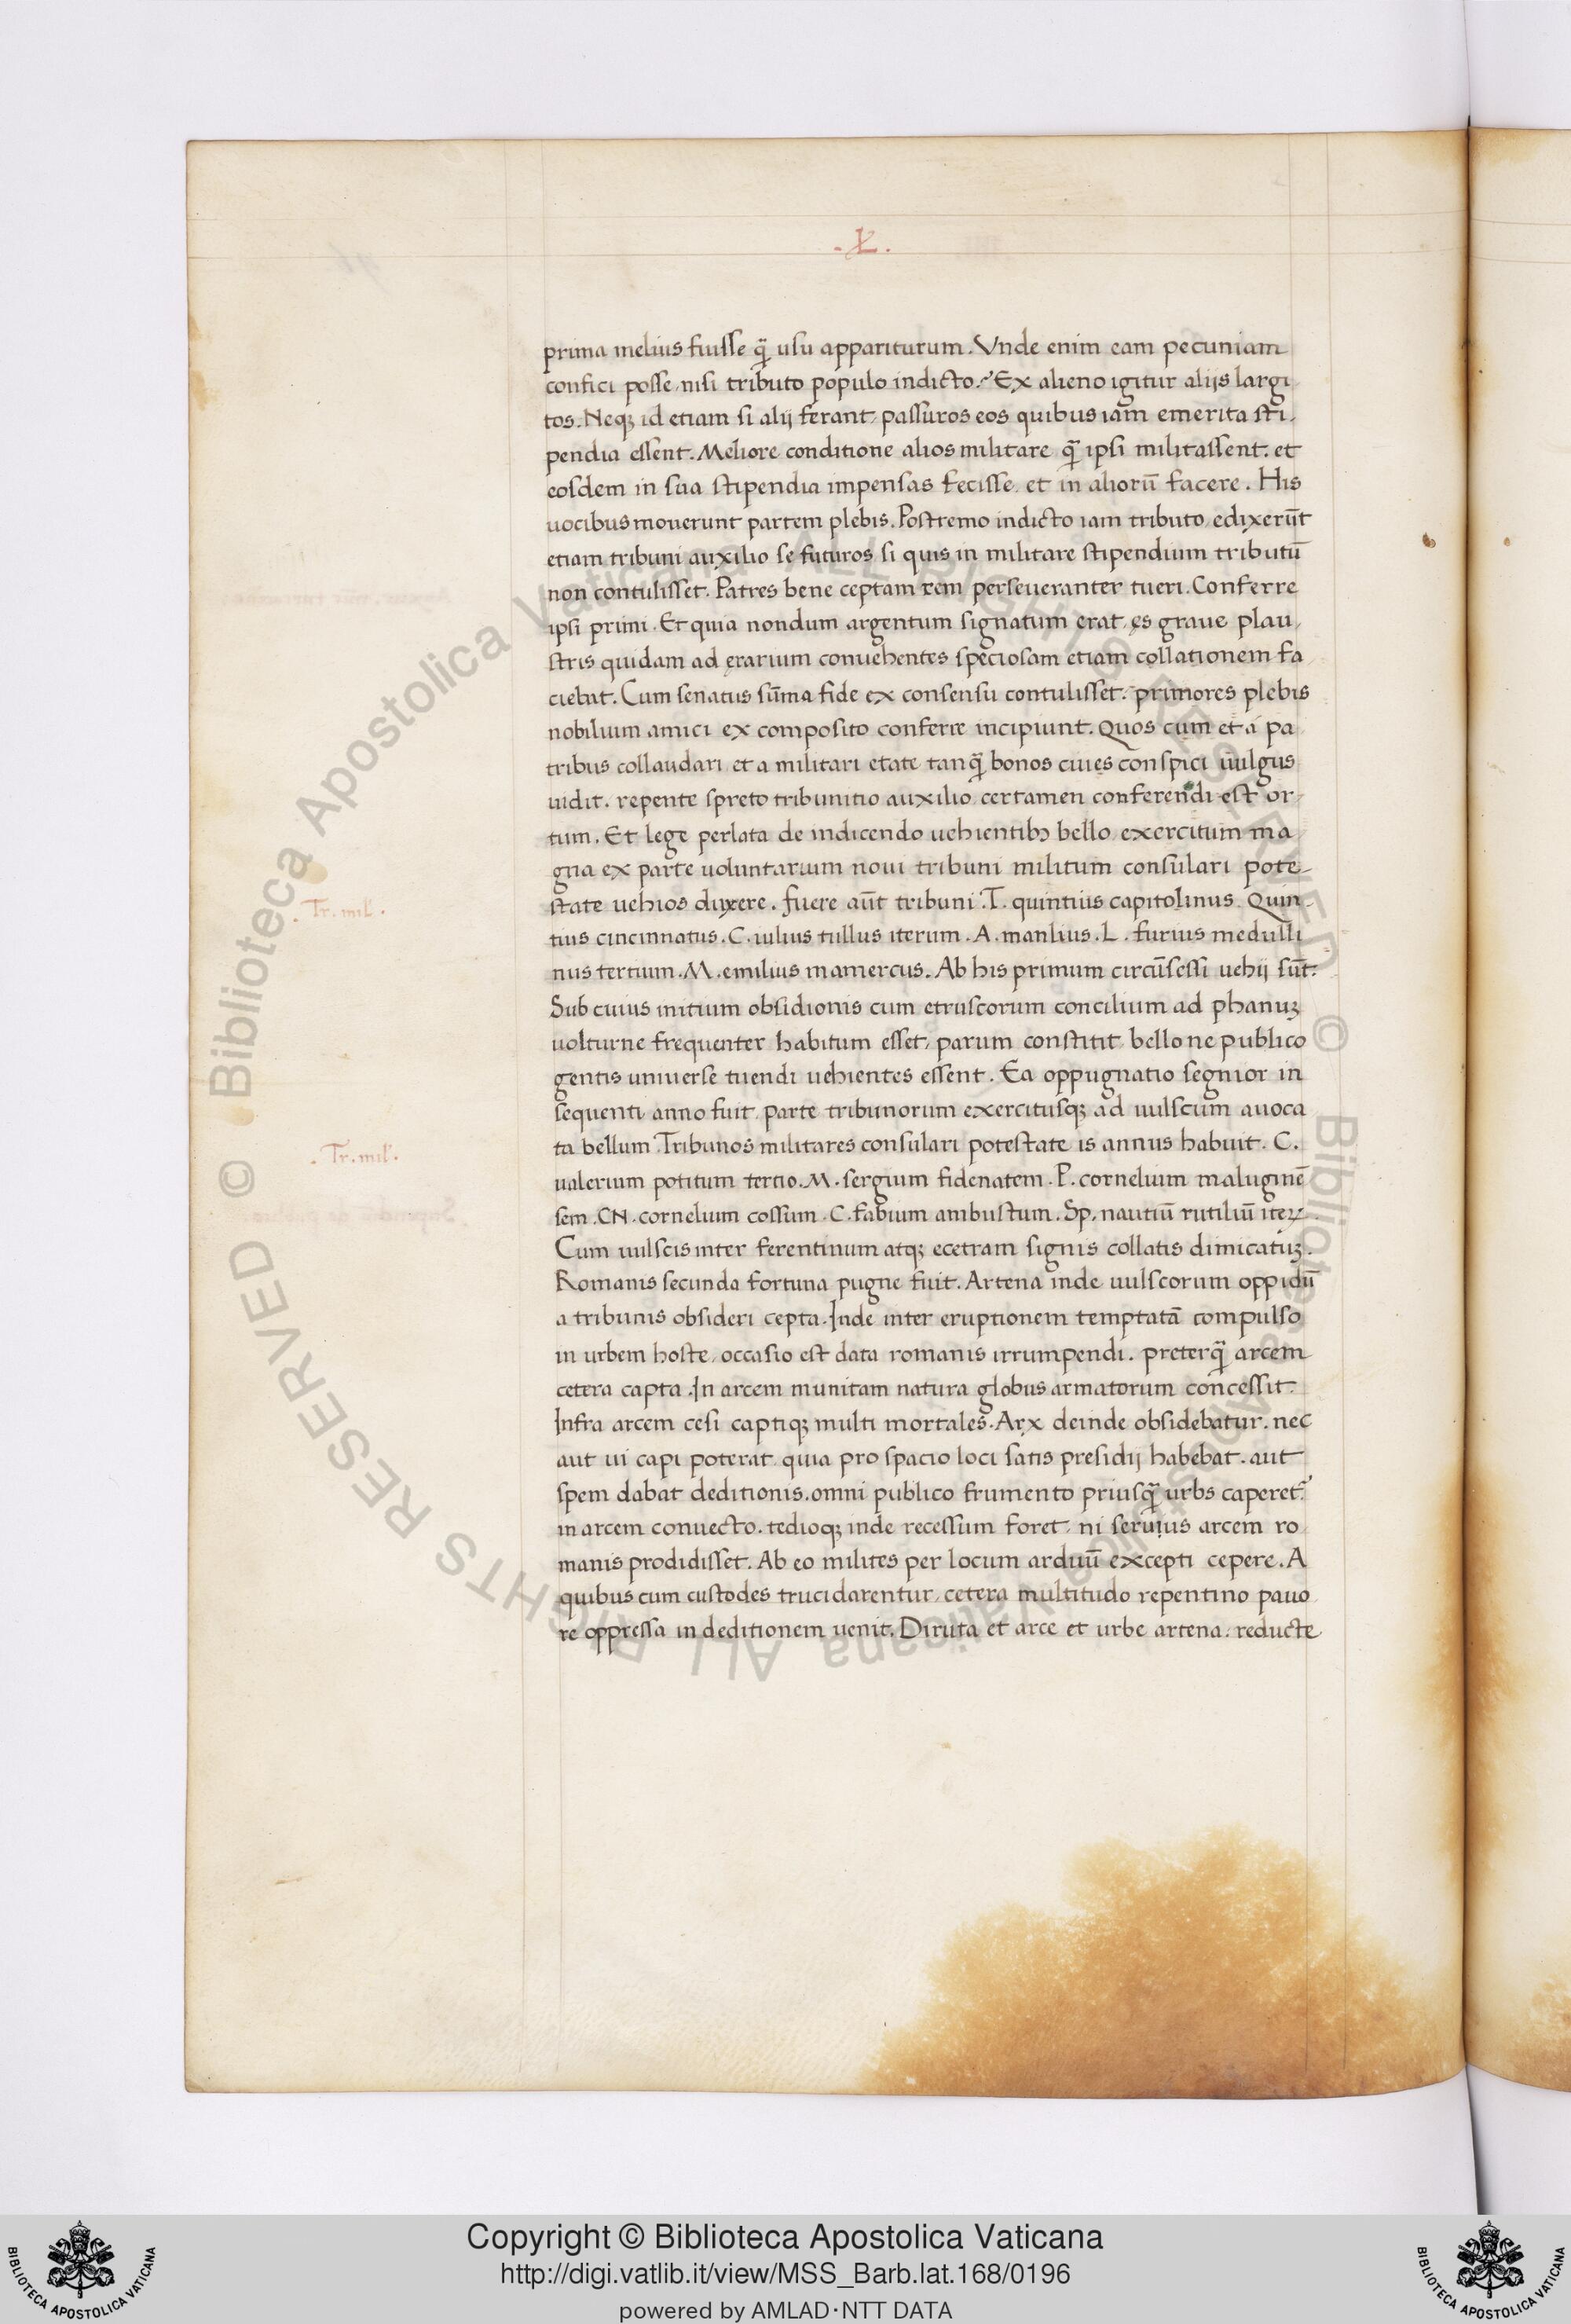 .L.
prima melius fuisse q̃ usu appariturum. Vnde enim eam pecuniam
confici posse, nisi tributo populo indicto.? Ex alieno igitur alijs largi
tos. Neqꝫ id etiam si alij ferant, passuros eos quibus iam emerita sti,
pendia essent. Meliore conditione alios militare q̃ ipsi militassent. et
eosdem in sua stipendia impensas fecisse, et in aliorũ facere. His
uocibus mouerunt partem plebis. Postremo indicto iam tributo, edixerũt
etiam tribuni auxilio se futuros si quis in militare stipendium tributũ
non contulisset. Patres bene ceptam rem perseueranter tueri. Conferre
ipsi primi. Et quia nondum argentum signatum erat, ęs graue plau,
stris quidam ad ęrarium conuehentes speciosam etiam collationem fa
ciebat. Cum senatus sũma fide ex consensu contulisset. primores plebis
nobilium amici ex composito conferre incipiunt. Quos cum et a pa
tribus collaudari, et a militari etate tanq̃ bonos ciues conspici uulgus
uidit. repente spreto tribunitio auxilio certamen conferendi est or,
tum. Et lege perlata de indicendo uehientibꝫ bello, exercitum ma
gna ex parte uoluntarium noui tribuni militum consulari pote,
state uehios duxere. fuere aũt tribuni .T. quintius capitolinus. Quin,
tius cincinnatus. C. iulius tullus iterum. A. manlius. L. furius medulli
nus tertium. M. emilius mamercus. Ab his primum circũsessi uehij sũt.
Sub cuius initium obsidionis cum etruscorum concilium ad phanuꝫ
uolturne frequenter habitum esset, parum constitit bello ne publico
gentis uniuerse tuendi uehientes essent. Ea oppugnatio segnior in
sequenti anno fuit, parte tribunorum exercitusqꝫ ad uulscum auoca
ta bellum. Tribunos militares consulari potestate is annus habuit. C.
ualerium potitum tertio. M. sergium fidenatem. P. cornelium maluginẽ
sem. CN. cornelium cossum. C. fabium ambustum. Sp. nautiũ rutiliũ iteꝝ.
Cum uulscis inter ferentinum atqꝫ ecetram signis collatis dimicatuꝫ.
Romanis secunda fortuna pugne fuit. Artena inde uulscorum oppidũ
a tribunis obsideri cepta. Inde inter eruptionem temptatã compulso
in urbem hoste, occasio est data romanis irrumpendi. preterq̃ arcem
cetera capta. In arcem munitam natura globus armatorum concessit.
Infra arcem cesi captiqꝫ multi mortales. Arx deinde obsidebatur. nec
aut ui capi poterat quia pro spacio loci satis presidij habebat. aut
spem dabat deditionis. omni publico frumento priusq̃ urbs caperet᷑
in arcem conuecto. tedioqꝫ inde recessum foret, ni seruius arcem ro
manis prodidisset. Ab eo milites per locum arduũ excepti cepere. A
quibus cum custodes trucidarentur, cetera multitudo repentino pauo
re oppressa in deditionem uenit. Diruta et arce et urbe artena. reducte
. Tr. mil'.
. Tr. mil'.
© Biblioteca Apostolica Vaticana ALL RIGHTS RESERVED
© Biblioteca Apostolica Vaticana ALL RIGHTS RESERVED
BIBLIOTECA APOSTOLICA VATICANA
Copyright © Biblioteca Apostolica Vaticana
http://digi.vatlib.it/view/MSS_Barb.lat.168/0196
powered by AMLAD·NTT DATA
BIBLIOTECA APOSTOLICA VATICANA